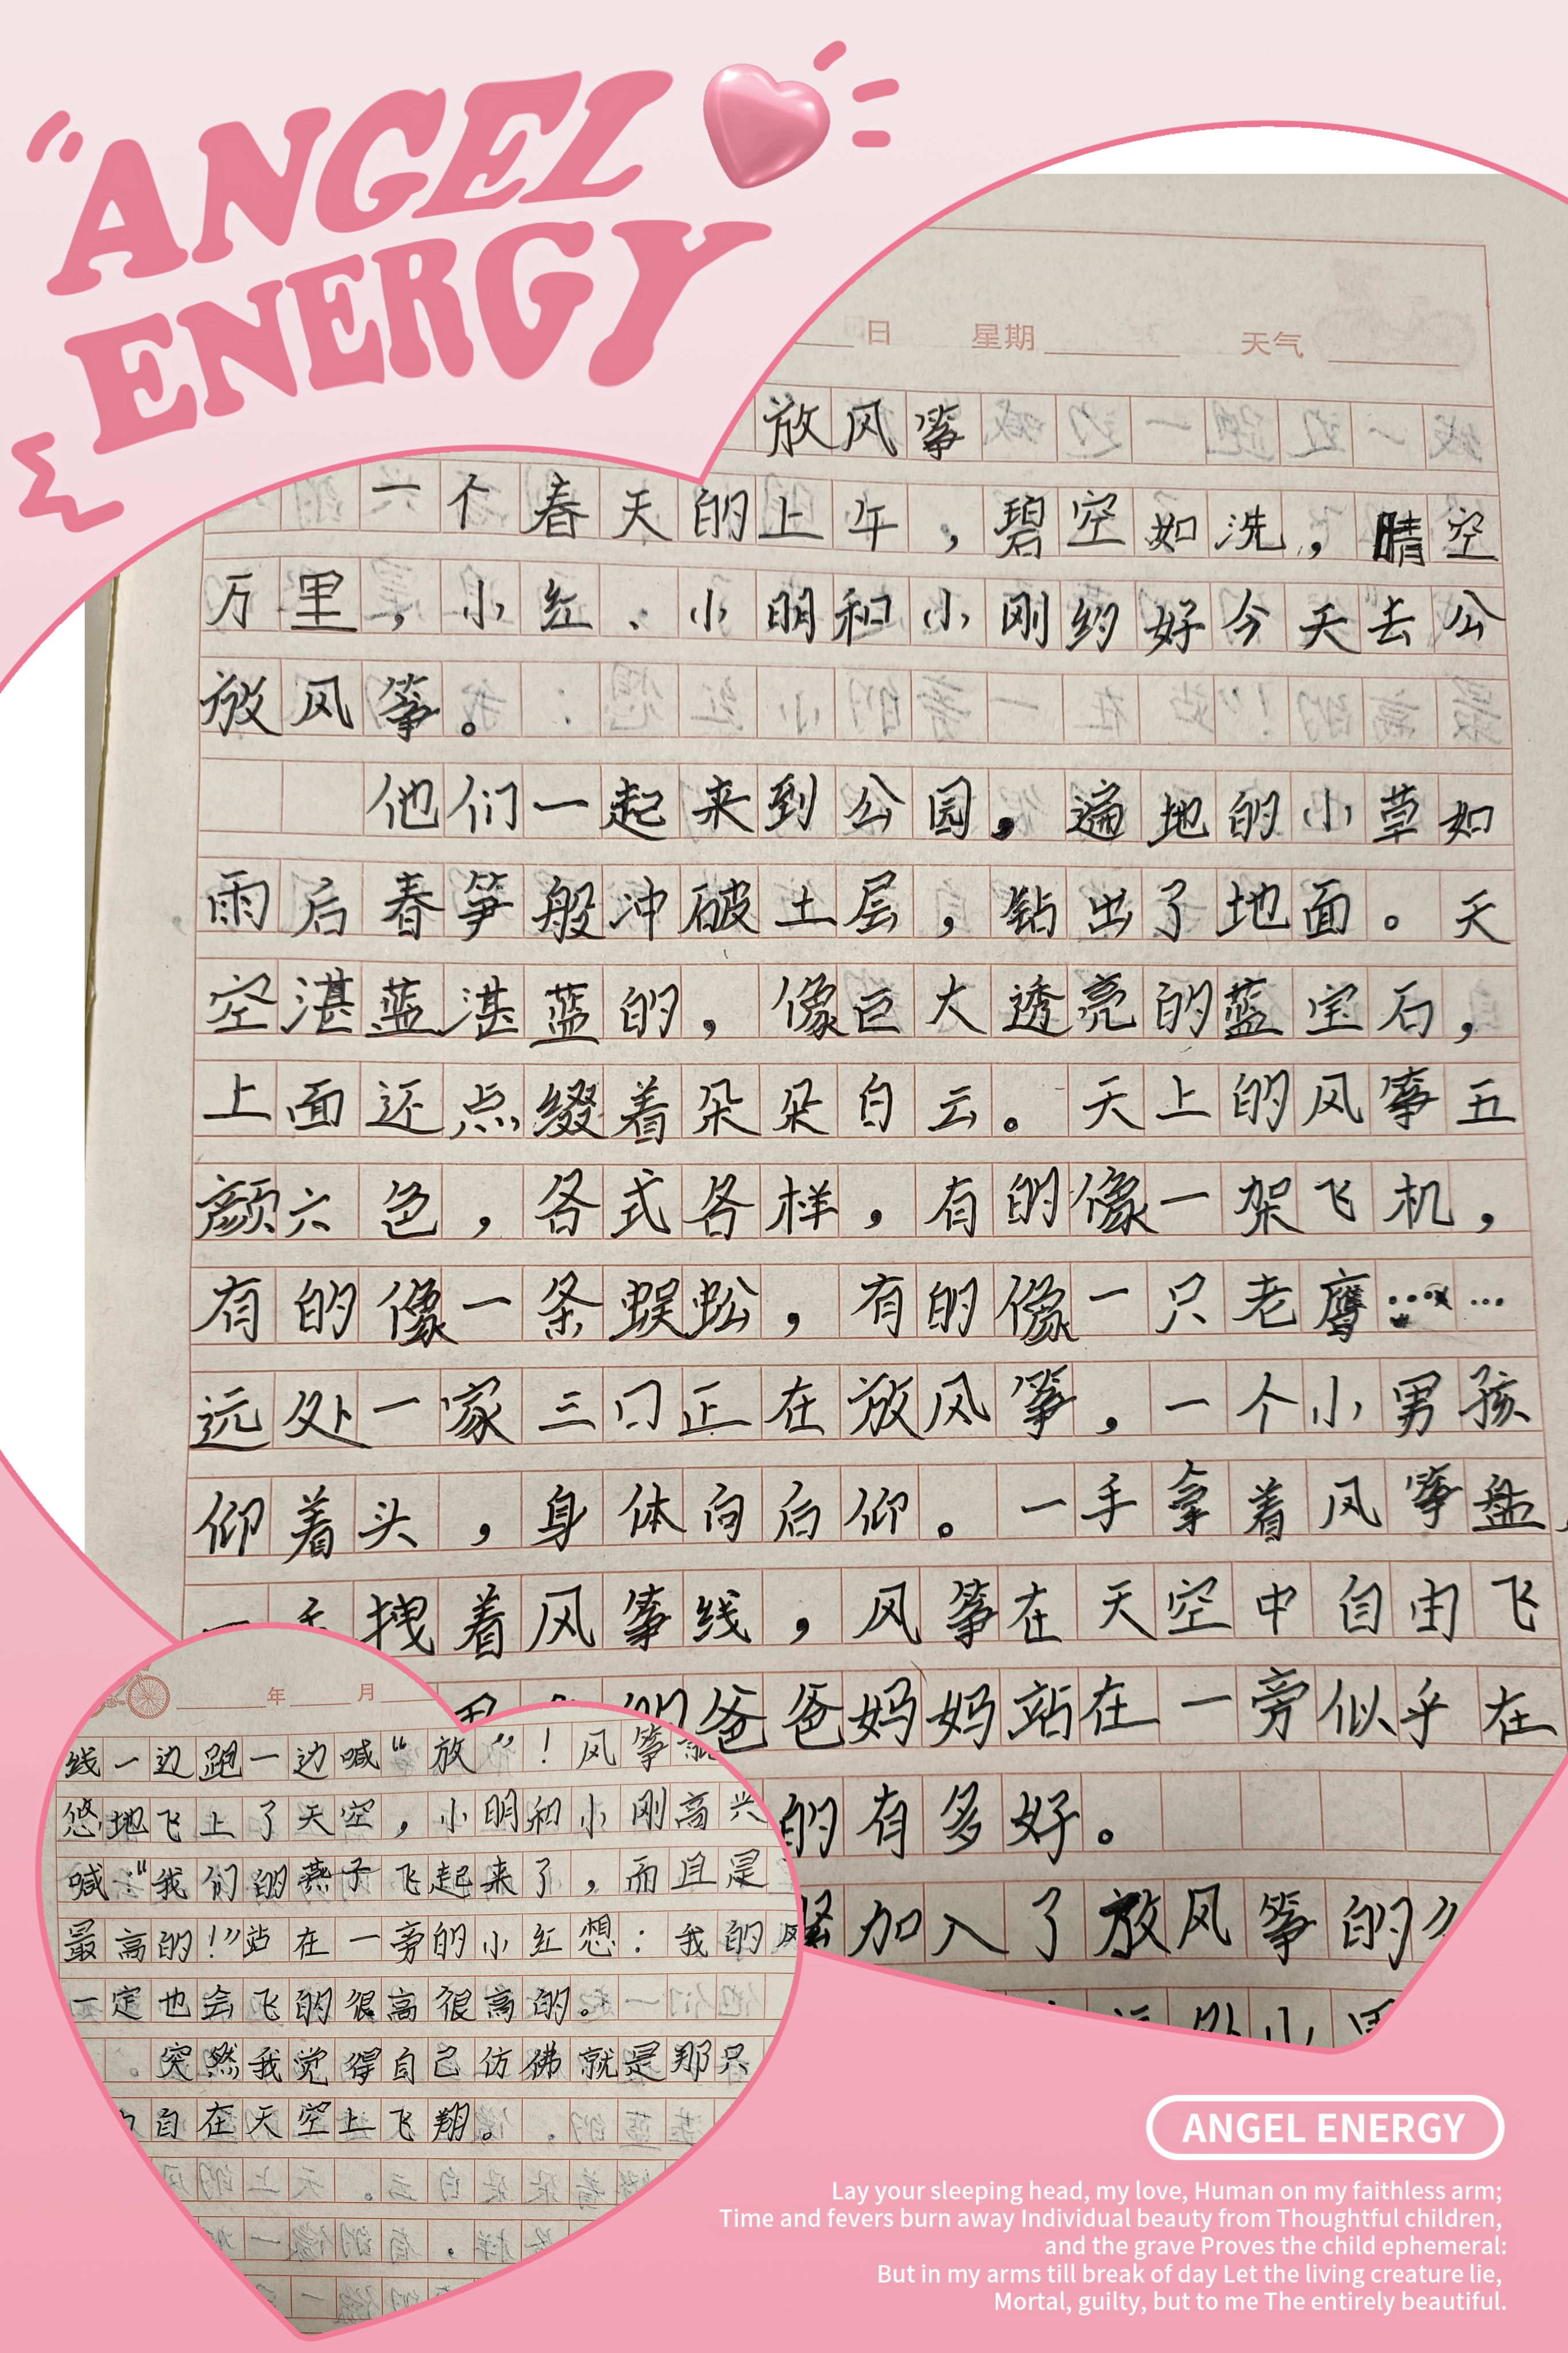 ANGEL
ENERGY
日 星期 天气
放风筝
一个春天的上午，碧空如洗，晴空
万里，小红、小明和小刚约好今天去公
放风筝。
他们一起来到公园，遍地的小草如
雨后春笋般冲破土层，钻出了地面。天
空湛蓝湛蓝的，像巨大透亮的蓝宝石，
上面还点缀着朵朵白云。天上的风筝五
颜六色，各式各样，有的像一架飞机，
有的像一条蜈蚣，有的像一只老鹰……
远处一家三口正在放风筝，一个小男孩
仰着头，身体向后仰。一手拿着风筝盘，
一手拽着风筝线，风筝在天空中自由飞
的爸爸妈妈站在一旁似乎在
的有多好。
加入了放风筝的
小
年 月
线一边跑一边喊“放”！风筝
悠地飞上了天空，小明和小刚高兴
喊：“我们的燕子飞起来了，而且是
最高的！”站在一旁的小红想：我的风
一定也会飞的很高很高的。
突然我觉得自己仿佛就是那只
自在天空上飞翔。
ANGEL ENERGY
Lay your sleeping head, my love, Human on my faithless arm;
Time and fevers burn away Individual beauty from Thoughtful children,
and the grave Proves the child ephemeral:
But in my arms till break of day Let the living creature lie,
Mortal, guilty, but to me The entirely beautiful.